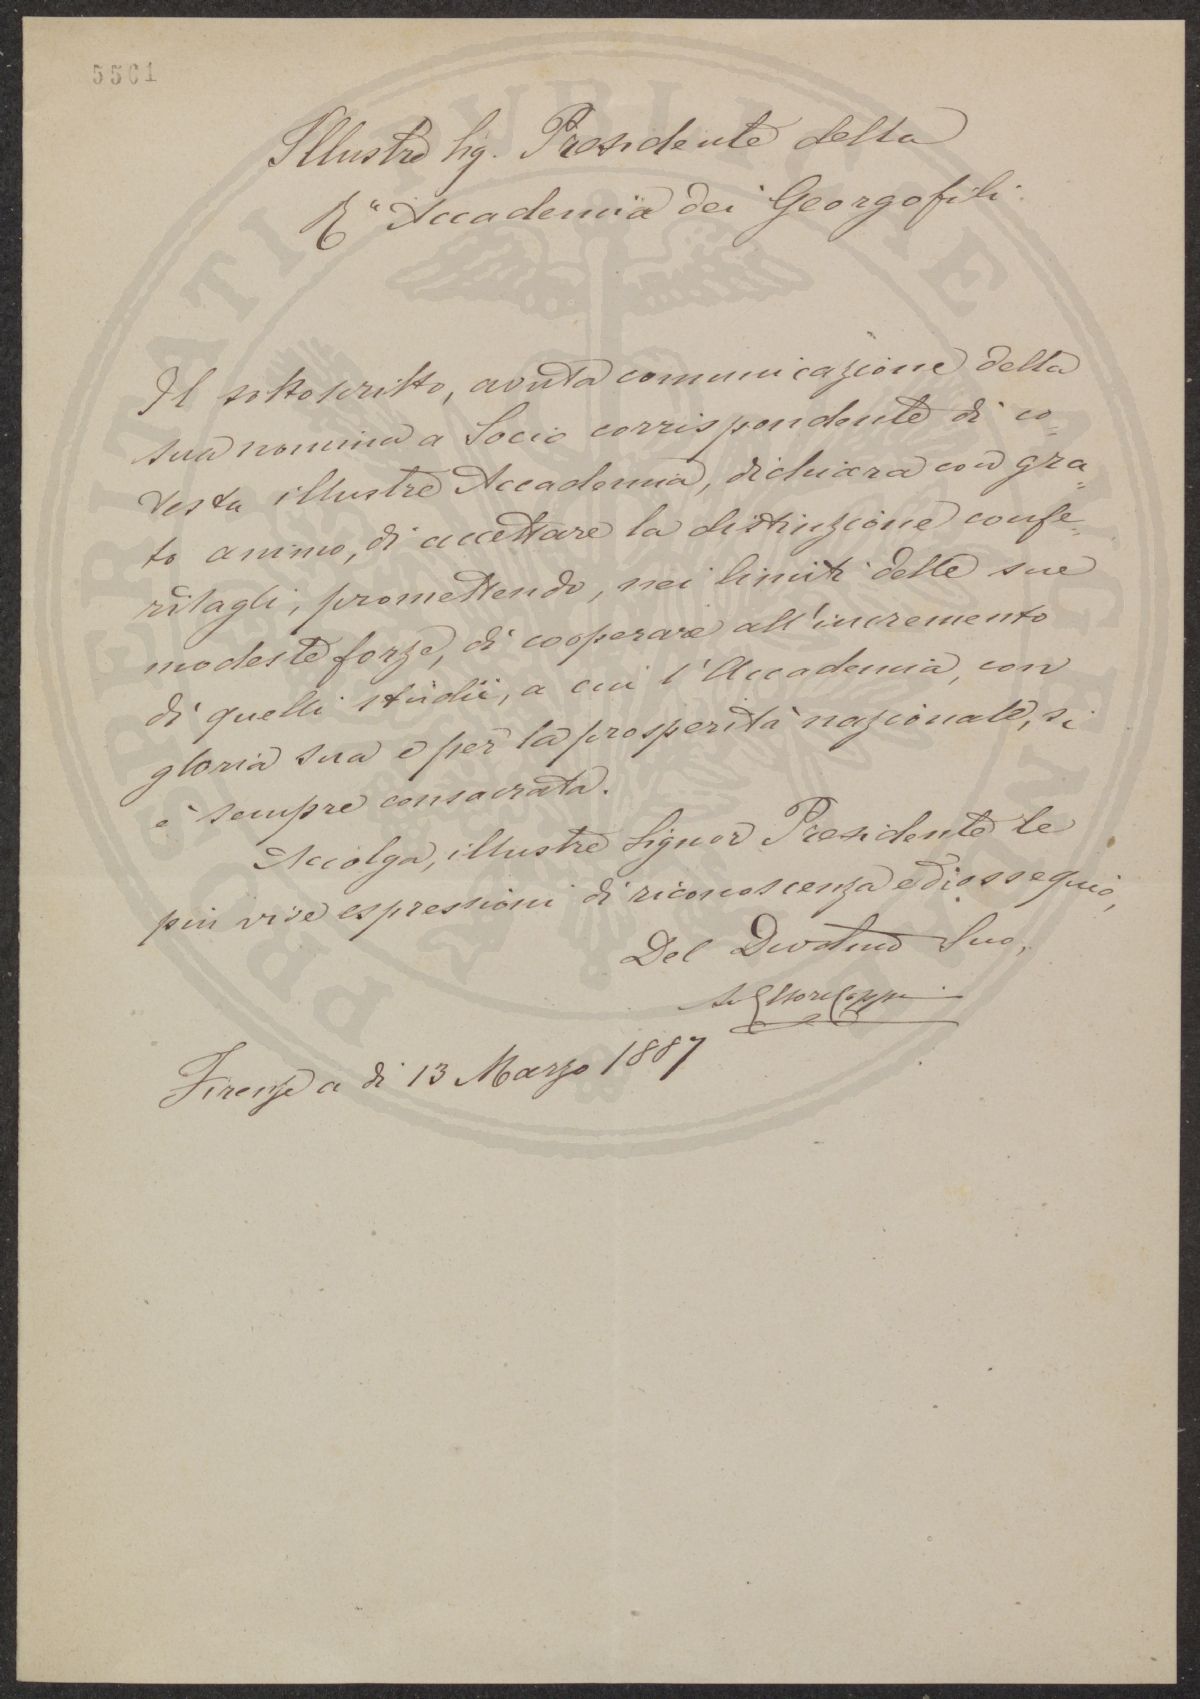 5561
Illustre Sig. Presidente della
R.a Accademia dei Georgofili.
Il sottoscritto, avuta comunicazione della
sua nomina a Socio corrispondente di co=
testa illustre Accademia, dichiara con gra=
to animo, di accettare la distinzione confe=
ritagli, promettendo, nei limiti delle sue
modeste forze, di cooperare all'incremento
di quelli studii, a cui l'Accademia, con
gloria sua e per la prosperità nazionale, si
è sempre consacrata.
Accolga, illustre Signor Presidente le
più vive espressioni di riconoscenza e di ossequio,
Del Devotmo Suo,
Ettore Coppi
Firenze a di 13 Marzo 1887